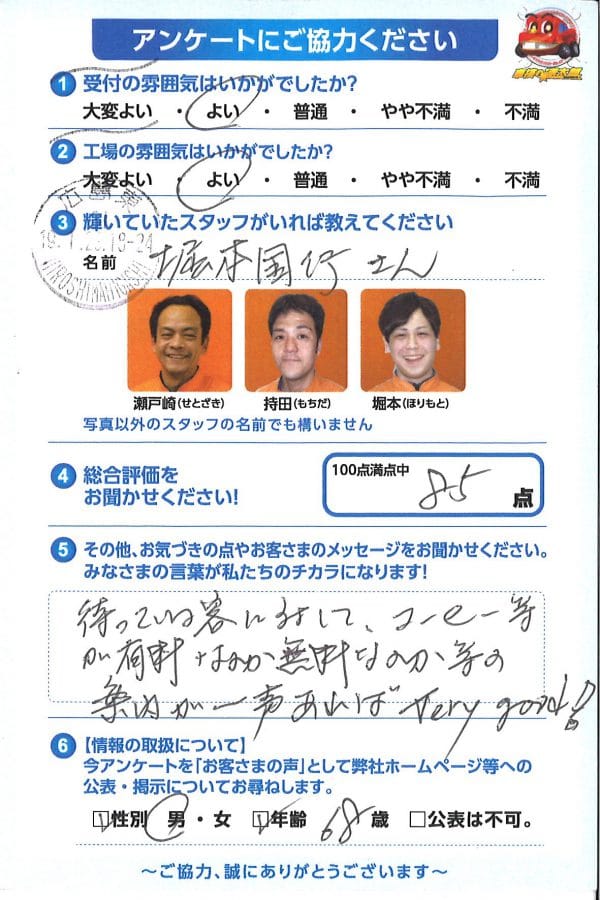 アンケートにご協力ください
1 受付の雰囲気はいかがでしたか?
大変よい ・ よい ・ 普通 ・ やや不満 ・ 不満
2 工場の雰囲気はいかがでしたか?
大変よい ・ よい ・ 普通 ・ やや不満 ・ 不満
3 輝いていたスタッフがいれば教えてください
名前 堀本国行さん
瀬戸崎(せとざき) 持田(もちだ) 堀本(ほりもと)
写真以外のスタッフの名前でも構いません
4 総合評価を
お聞かせください!
100点満点中 85 点
5 その他、お気づきの点やお客さまのメッセージをお聞かせください。
みなさまの言葉が私たちのチカラになります!
待っている客に対して、コーヒー等
が有料なのか無料なのか等の
案内が一声あれば very good!!
6 【情報の取扱について】
今アンケートを「お客さまの声」として弊社ホームページ等への
公表・掲示についてお尋ねします。
□性別 男・女 □年齢 68 歳 □公表は不可。
～ご協力、誠にありがとうございます～